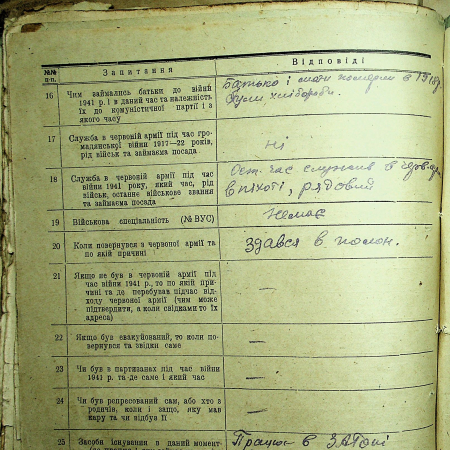 №№ п-п.
Запитання
Відповіді
16
Чим займались батьки до війни
1941 р. і в даний час та належність
їх до комуністичної партії і з
якого часу
Батько і мати померли в
були хлібороби.
17
Служба в червоній армії під час гро-
мадянської війни 1917—22 років,
рід військ та займаєма посада
Ні
18
Служба в червоній армії під час
війни 1941 року, який час, рід
військ, останнє військове звання
та займаєма посада
час служив в
в піхоті, рядовий
19
Військова спеціяльність (№ ВУС)
Немає
20
Коли повернувся з червоної армії та
по якій причині
Здався в полон.
21
Якщо не був в червоній армії під
час війни 1941 р., то по якій при-
чині та де перебував підчас від-
ходу червоної армії (чим може
підтвердити, а коли свідками то їх
адреса)
—
22
Якщо був евакуйований, то коли по-
вернувся та звідки саме
—
23
Чи був в партизанах під час війни
1941 р. та де саме і який час
—
24
Чи був репресований сам, або хто з
родичів, коли і защо, яку мав
кару та чи відбув її
—
25
Засоби існування в даний момент
Працює в